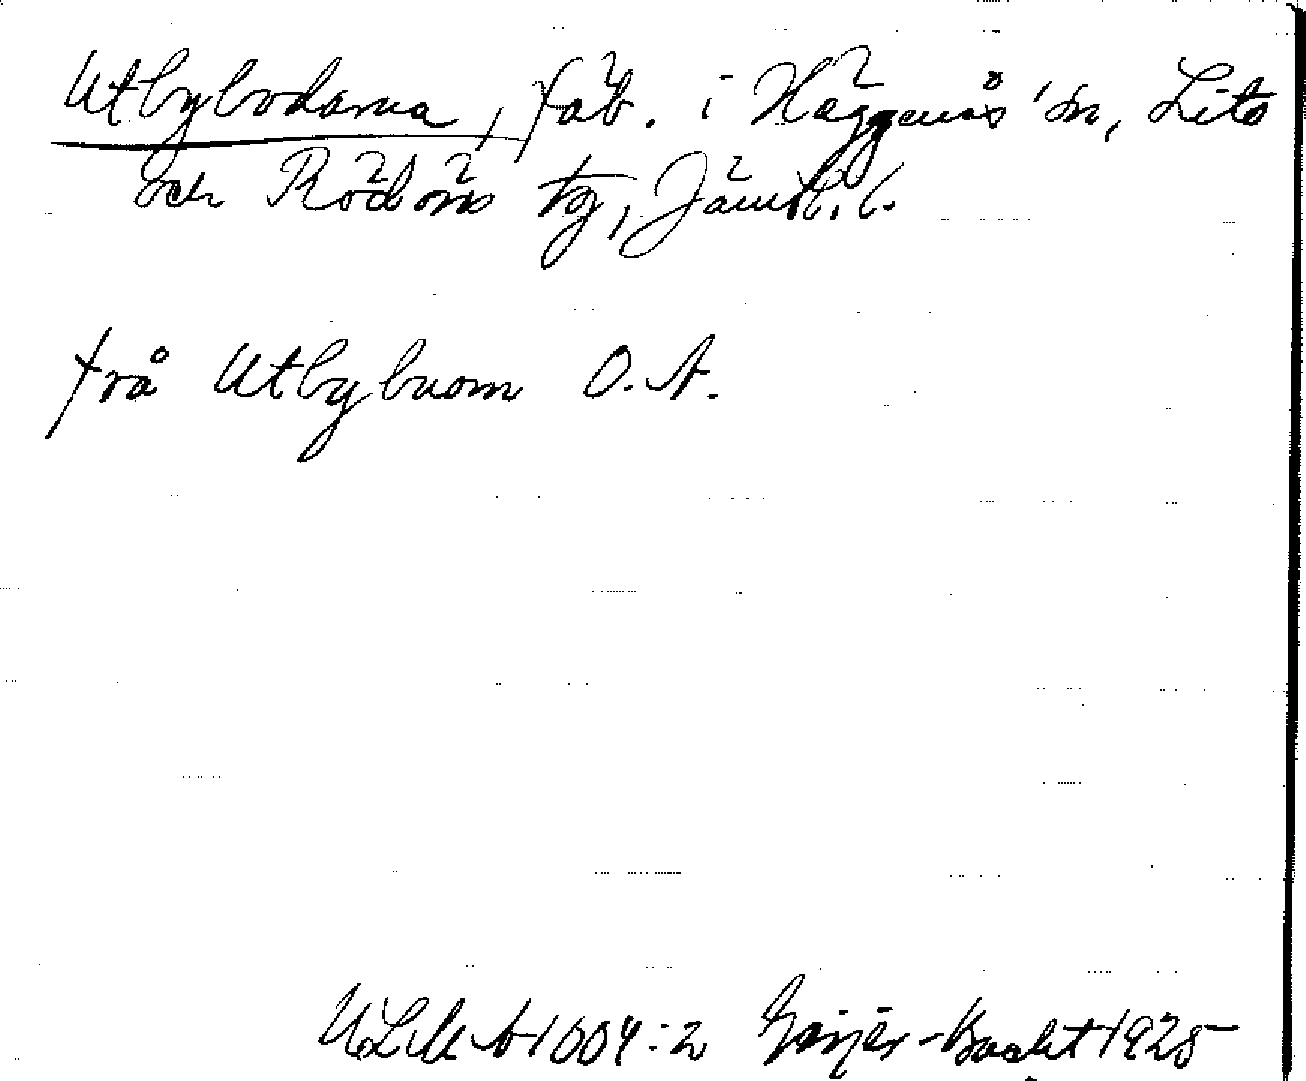 Utbybodarna, fäb. i Häggenås sn, Lits
och Rödöns tg, Jämtl. l.
från Utbybuom O. A.
ULMA 1004:2 Geijer-Bucht 1925